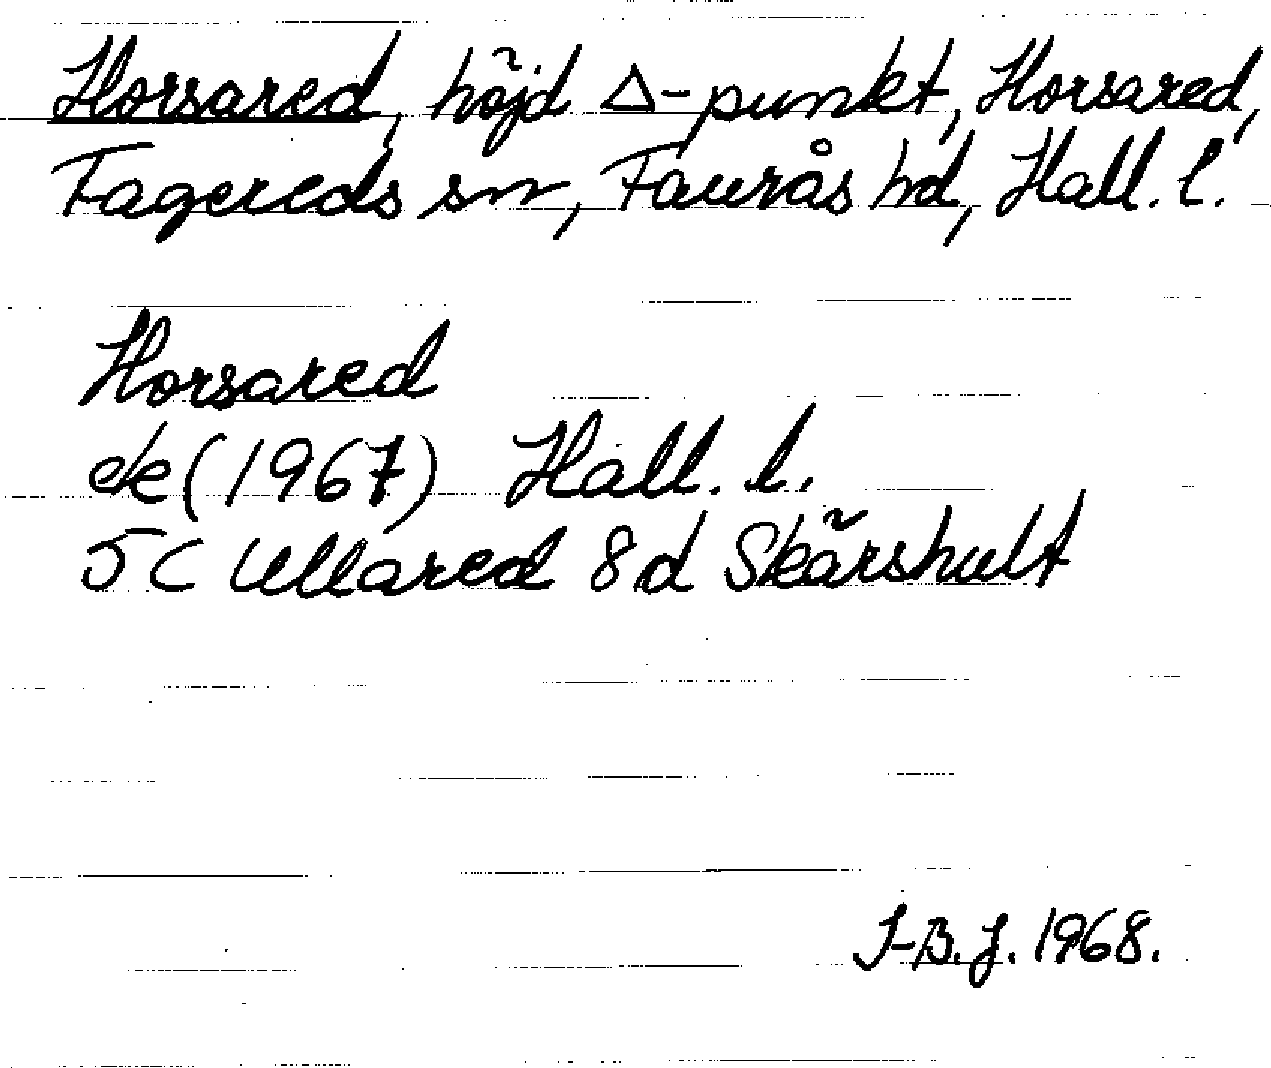 Horsared, höjd Δ-punkt, Horsared,
Fagereds sn, Faurås hd, Hall. l.
Horsared
ek (1967) Hall. l.
5C Ullared 8d Skärshult
I-B.J. 1968.